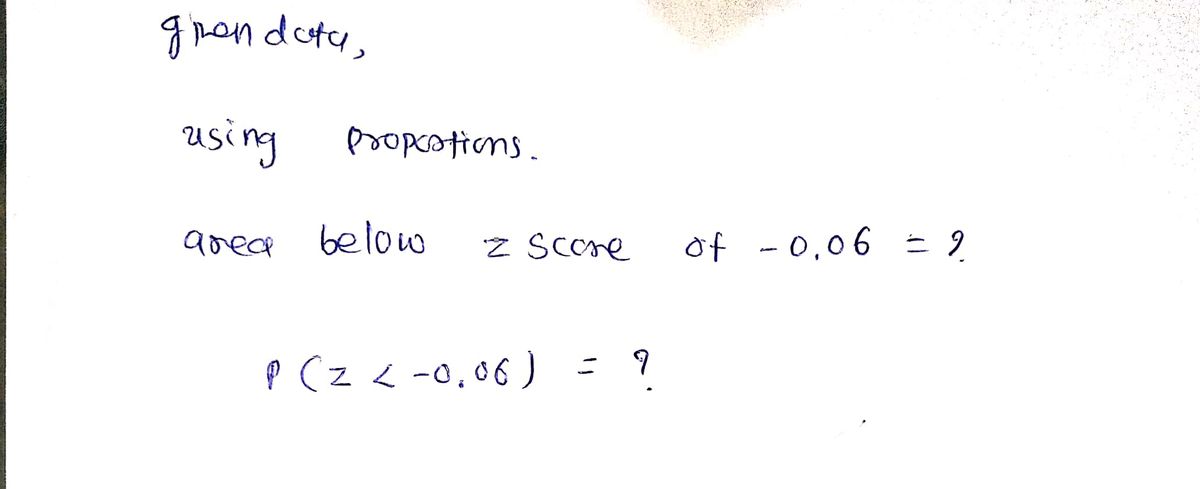 given data,
using proportions.
area below z score of -0.06 = ?
P(z < -0.06) = ?